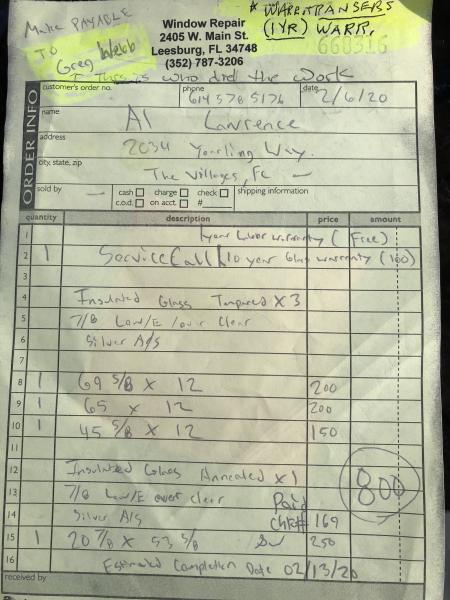 Make PAYABLE
TO
Greg Webb
* WARR. TRANSFERS
(1 YR) WARR.
668316
Window Repair
2405 W. Main St.
Leesburg, FL 34748
(352) 787-3206
↑ This is who did the work
ORDER INFO
customer's order no.
phone
614 578 5176
date
2/6/20
name
Al Lawrence
address
2034 Yearling Way.
city, state, zip
The Villages, FL
sold by
cash
charge
check
c.o.d.
on acct.
#
shipping information
quantity description price amount
1 1 year labor warranty (Free)
2 1 Service Call 10 year Glass warranty (100)
3
4 Insulated Glass Tempered x 3
5 7/8 Low/E over Clear
6 Silver A/S
7
8 1 69 5/8 x 12 200
9 1 65 x 12 200
10 1 45 5/8 x 12 150
11
12 Insulated Glass Annealed x 1
800
13 7/8 Low/E over clear Paid
14 Silver A/S Chk# 169
15 1 20 7/8 x 53 5/8 250
16 Estimated Completion Date 02/13/20
received by